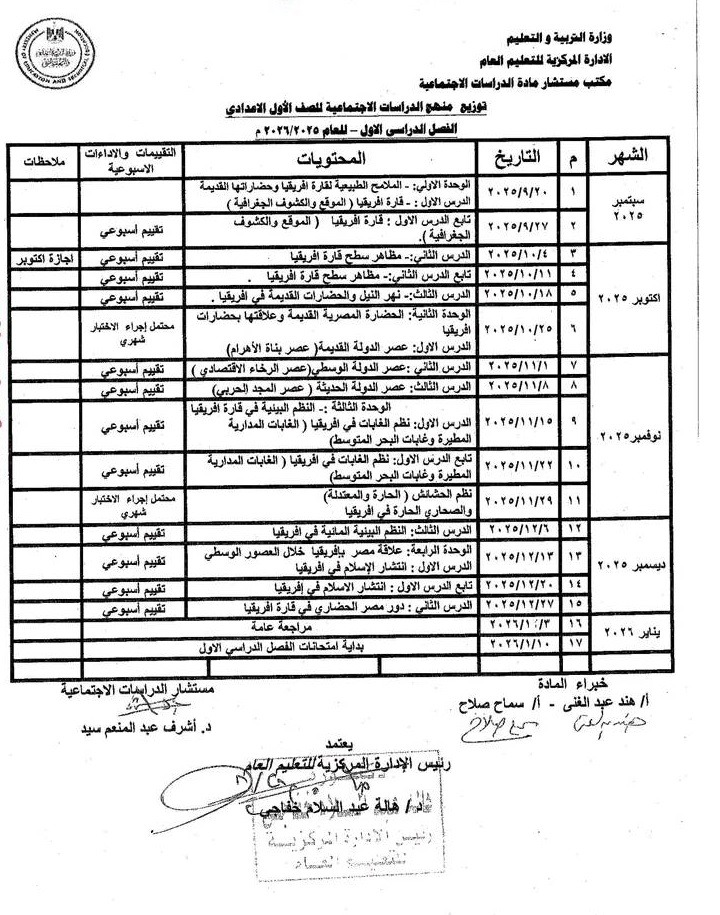 وزارة التربية و التعليم
الادارة المركزية للتعليم العام
مكتب مستشار مادة الدراسات الاجتماعية
توزيع منهج الدراسات الاجتماعية للصف الأول الاعدادي
الفصل الدراسى الاول – للعام ٢٠٢٦/٢٠٢٥ م
الشهر م التاريخ المحتويات التقييمات والاداءات الاسبوعية ملاحظات
سبتمبر ٢٠٢٥
١ ٢٠٢٥/٩/٢٠ الوحدة الاولي: - الملامح الطبيعية لقارة افريقيا وحضاراتها القديمة
الدرس الاول : - قارة افريقيا ( الموقع والكشوف الجغرافية )
٢ ٢٠٢٥/٩/٢٧ تابع الدرس الاول : قارة افريقيا ( الموقع والكشوف تقييم أسبوعي
الجغرافية ).
اكتوبر ٢٠٢٥
٣ ٢٠٢٥/١٠/٤ الدرس الثاني:- مظاهر سطح قارة افريقيا تقييم أسبوعي اجازة اكتوبر
٤ ٢٠٢٥/١٠/١١ تابع الدرس الثاني:- مظاهر سطح قارة افريقيا . تقييم أسبوعي
٥ ٢٠٢٥/١٠/١٨ الدرس الثالث:- نهر النيل والحضارات القديمة في افريقيا . تقييم أسبوعي
٦ ٢٠٢٥/١٠/٢٥ الوحدة الثانية: الحضارة المصرية القديمة وعلاقتها بحضارات محتمل إجراء الاختبار
افريقيا شهري
الدرس الاول: عصر الدولة القديمة( عصر بناة الأهرام)
نوفمبر ٢٠٢٥
٧ ٢٠٢٥/١١/١ الدرس الثاني :عصر الدولة الوسطي(عصر الرخاء الاقتصادي ) تقييم أسبوعي
٨ ٢٠٢٥/١١/٨ الدرس الثالث: عصر الدولة الحديثة ( عصر المجد الحربي) تقييم أسبوعي
٩ ٢٠٢٥/١١/١٥ الوحدة الثالثة :- النظم البيئية في قارة افريقيا
الدرس الاول: نظم الغابات في افريقيا ( الغابات المدارية تقييم أسبوعي
المطيرة وغابات البحر المتوسط)
١٠ ٢٠٢٥/١١/٢٢ تابع الدرس الاول: نظم الغابات في افريقيا ( الغابات المدارية تقييم أسبوعي
المطيرة وغابات البحر المتوسط)
١١ ٢٠٢٥/١١/٢٩ نظم الحشائش ( الحارة والمعتدلة) محتمل إجراء الاختبار
والصحاري الحارة في افريقيا شهري
ديسمبر ٢٠٢٥
١٢ ٢٠٢٥/١٢/٦ الدرس الثالث: النظم البيئية المائية في افريقيا تقييم أسبوعي
١٣ ٢٠٢٥/١٢/١٣ الوحدة الرابعة: علاقة مصر بإفريقيا خلال العصور الوسطي تقييم أسبوعي
الدرس الاول : انتشار الإسلام في افريقيا
١٤ ٢٠٢٥/١٢/٢٠ تابع الدرس الاول : انتشار الاسلام في إفريقيا تقييم أسبوعي
١٥ ٢٠٢٥/١٢/٢٧ الدرس الثاني : دور مصر الحضاري في قارة افريقيا تقييم أسبوعي
يناير ٢٠٢٦
١٦ ٢٠٢٦/١/٣ مراجعة عامة
١٧ ٢٠٢٦/١/١٠ بداية امتحانات الفصل الدراسي الاول
خبراء المادة مستشار الدراسات الاجتماعية
أ/ هند عبد الغنى - أ/ سماح صلاح د. أشرف عبد المنعم سيد
يعتمد
رئيس الإدارة المركزية للتعليم العام
د/ هالة عبد السلام خفاجي
رئيس الادارة المركزيــة